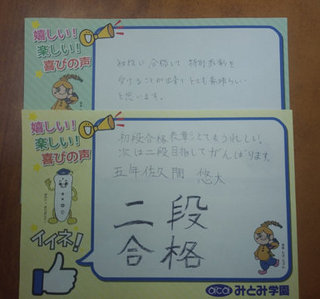 嬉しい!
楽しい!
喜びの声
初段に合格して特別表彰を
受けることが出来てとても素晴らしい
と思います。
嬉しい!
楽しい!
喜びの声
初段合格表彰とてもうれしい。
次は二段目指してがんばります。
五年 佐久間 悠太
イイネ!
二段
合格
aca みとみ学園